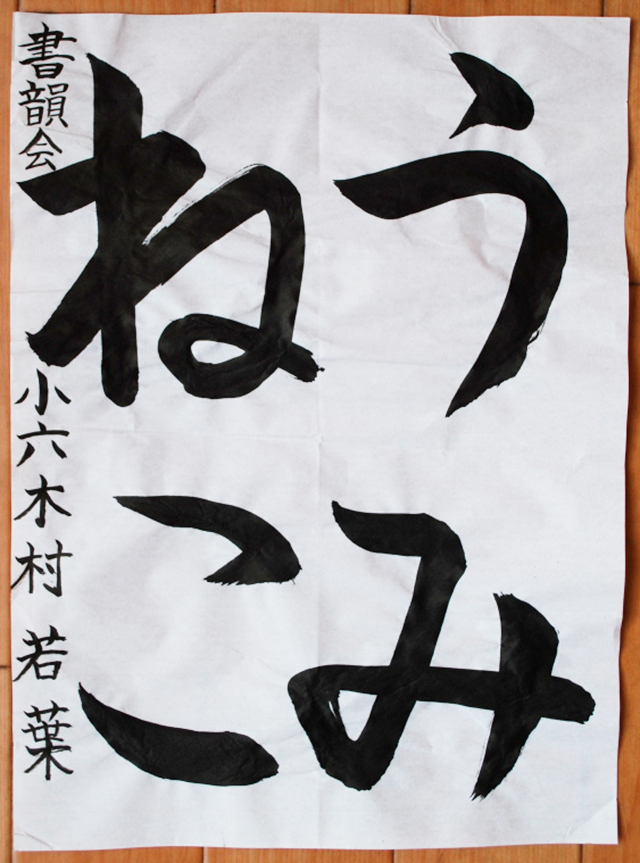 うみ
ねこ
書韻会 小六 木村 若葉